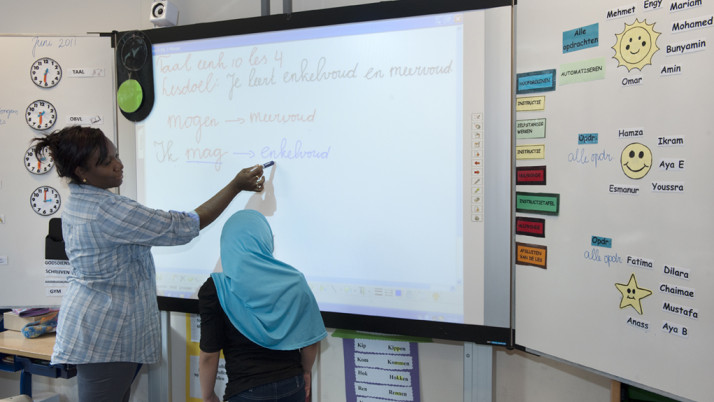 Juni 2011
TAAL
Taal eenh 10 les 4
Lesdoel: Je leert enkelvoud en meervoud
mogen → meervoud
Ik mag → enkelvoud
GODSDIENST
SCHRIJVEN
GYM
Kip Kippen
Kom Kommen
Hok Hokken
Bon Bonnen
Alle
opdrachten
AUTOMATISEREN
INSTRUCTIE
ZELFSTANDIG
WERKEN
INSTRUCTIE
INSTRUCTIETAFEL
AFSLUITEN
VAN DE LES
Mehmet
Engy
Mariam
Mohamed
Bunyamin
Amin
Omar
Opdr
alle opdr
Hamza
Ikram
Aya E
Youssra
Esmanur
Opdr
alle opdr
Fotima
Dilara
Chaimae
Mustafa
Aya B
Anass